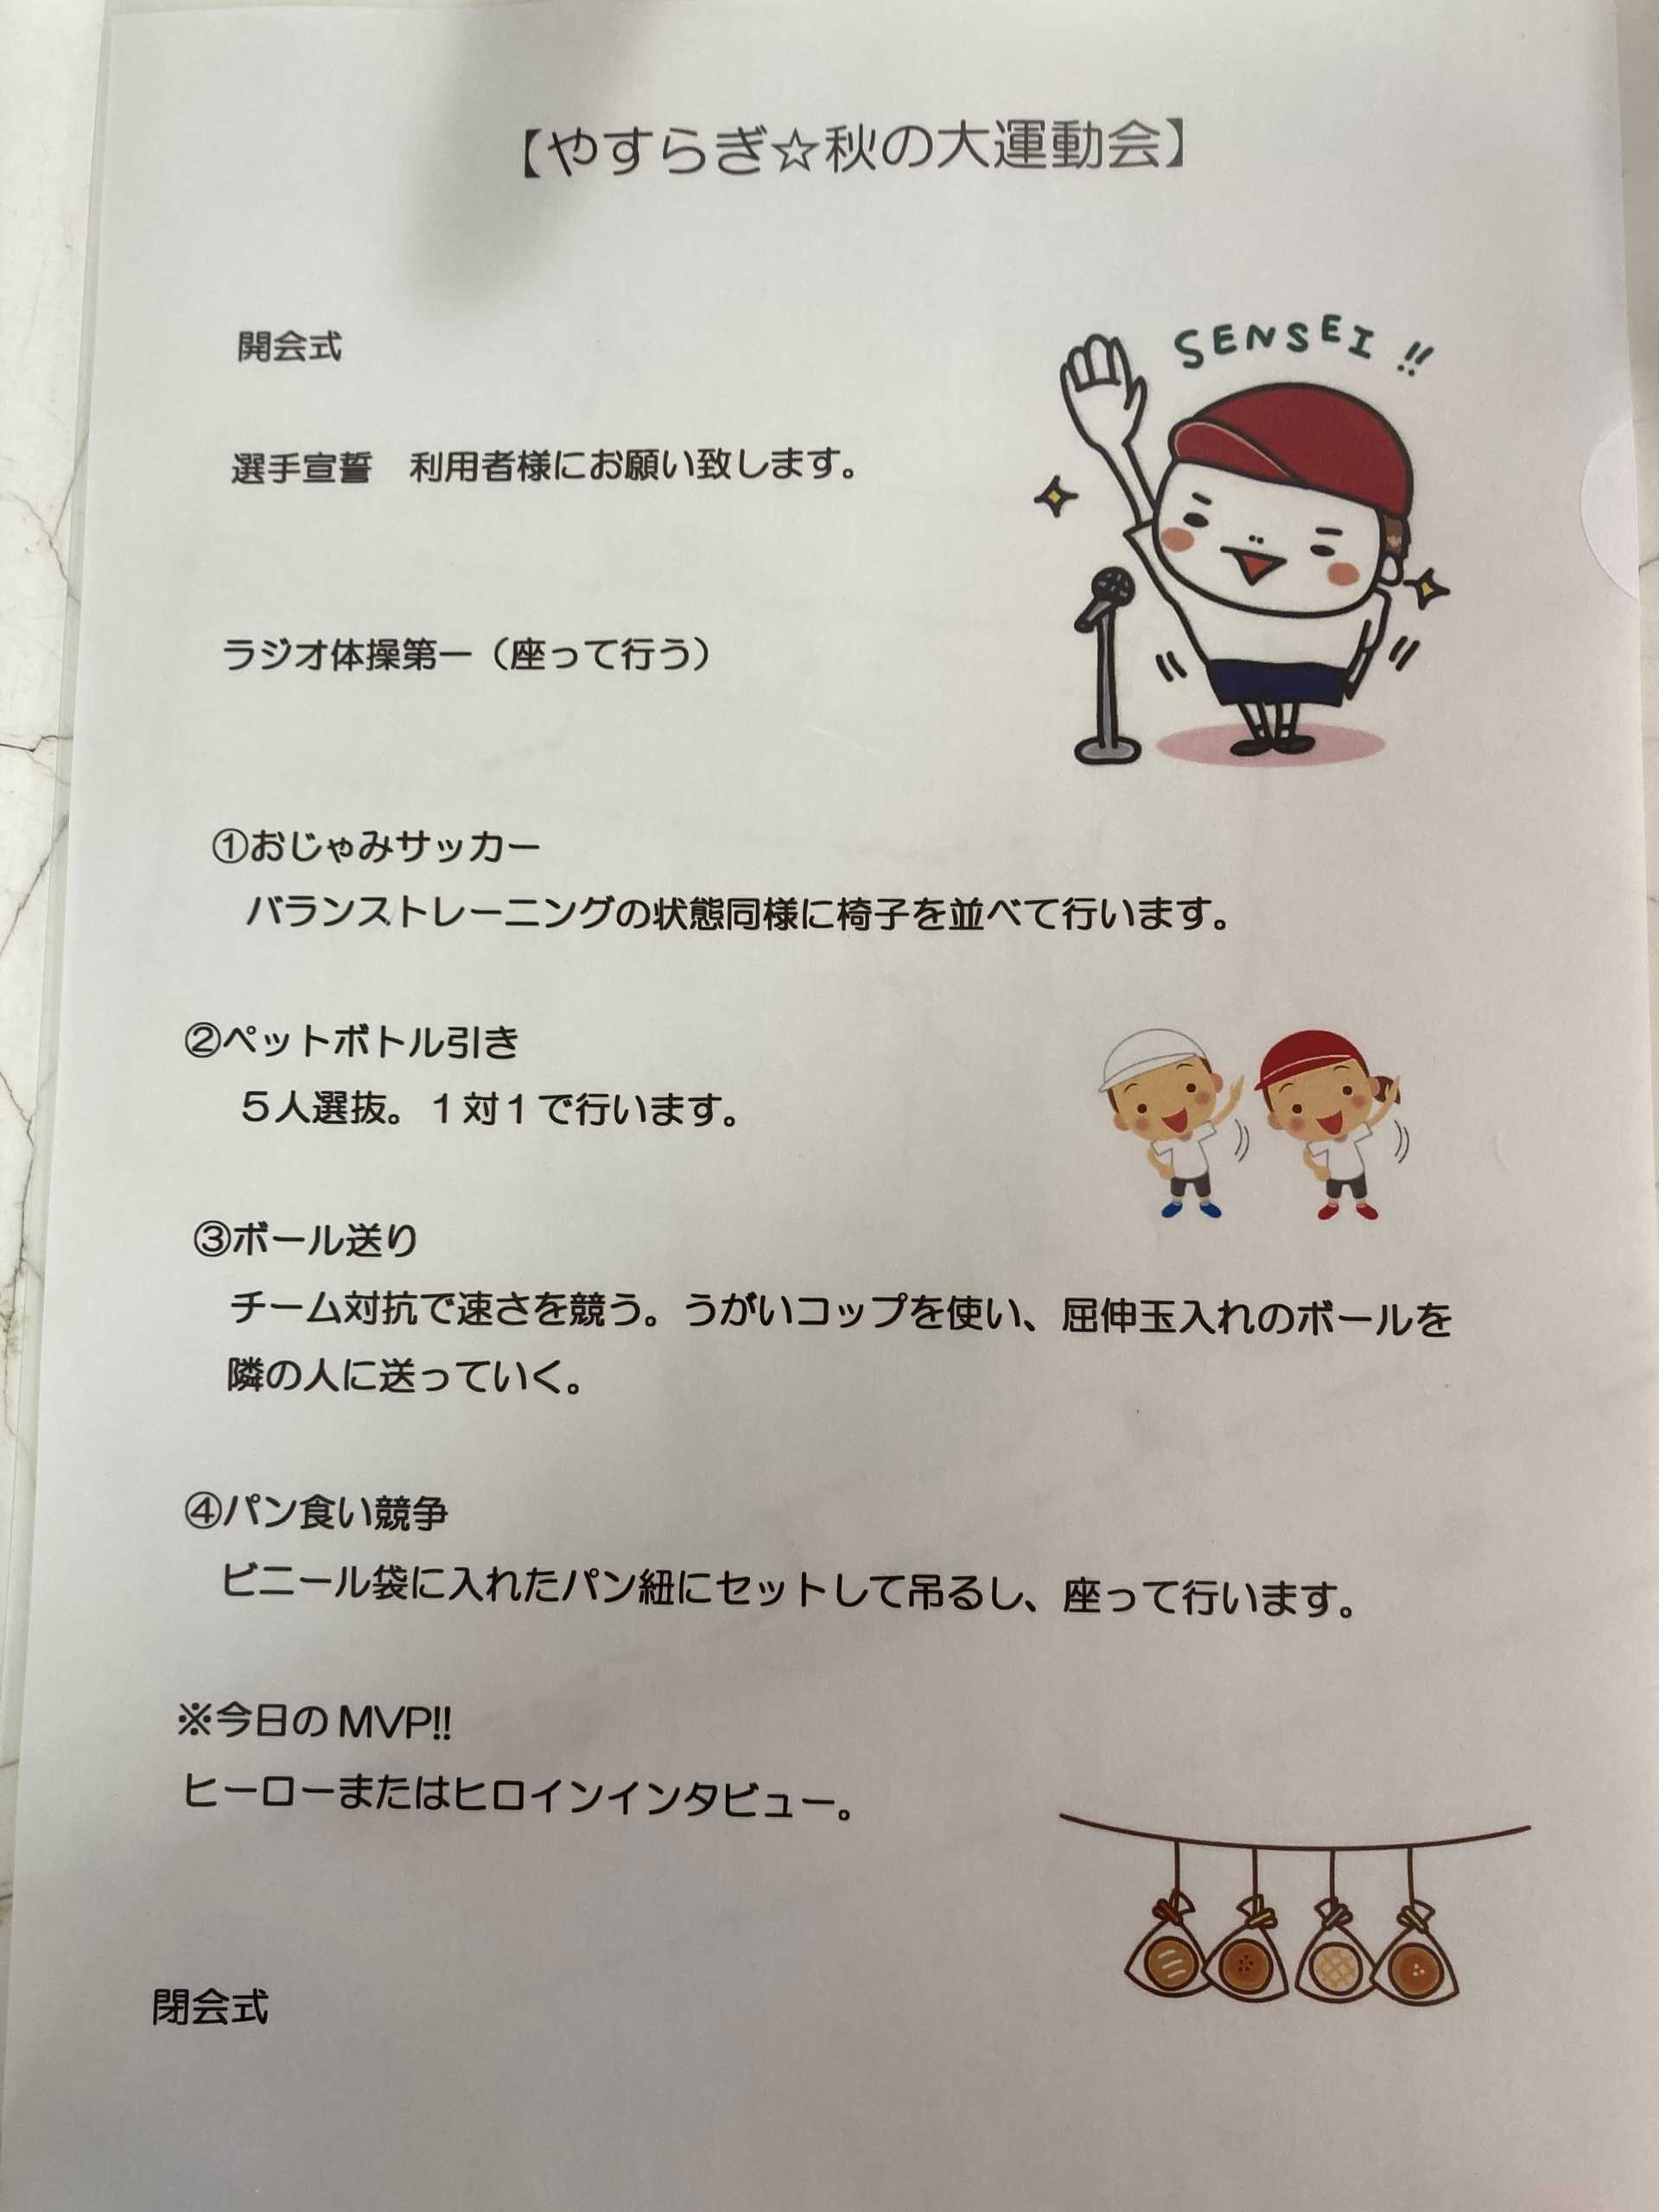 【やすらぎ☆秋の大運動会】
開会式
SENSEI!!
選手宣誓　利用者様にお願い致します。
ラジオ体操第一（座って行う）
①おじゃみサッカー
バランストレーニングの状態同様に椅子を並べて行います。
②ペットボトル引き
５人選抜。１対１で行います。
③ボール送り
チーム対抗で速さを競う。うがいコップを使い、屈伸玉入れのボールを
隣の人に送っていく。
④パン食い競争
ビニール袋に入れたパン紐にセットして吊るし、座って行います。
※今日のMVP!!
ヒーローまたはヒロインインタビュー。
閉会式